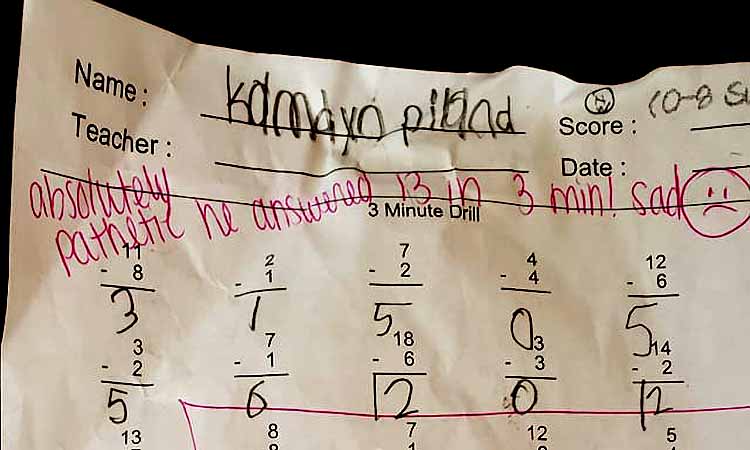 Name : Kamdyn piland
Score :
Teacher :
Date :
absolutely
pathetic he answered 13 in 3 min! sad
3 Minute Drill
11 2 7 4 12
- 8 - 1 - 2 - 4 - 6
3 1 5 0 5
3 7 18 3 14
- 2 - 1 - 6 - 3 - 2
5 6 12 0 12
13 8 7 12 5